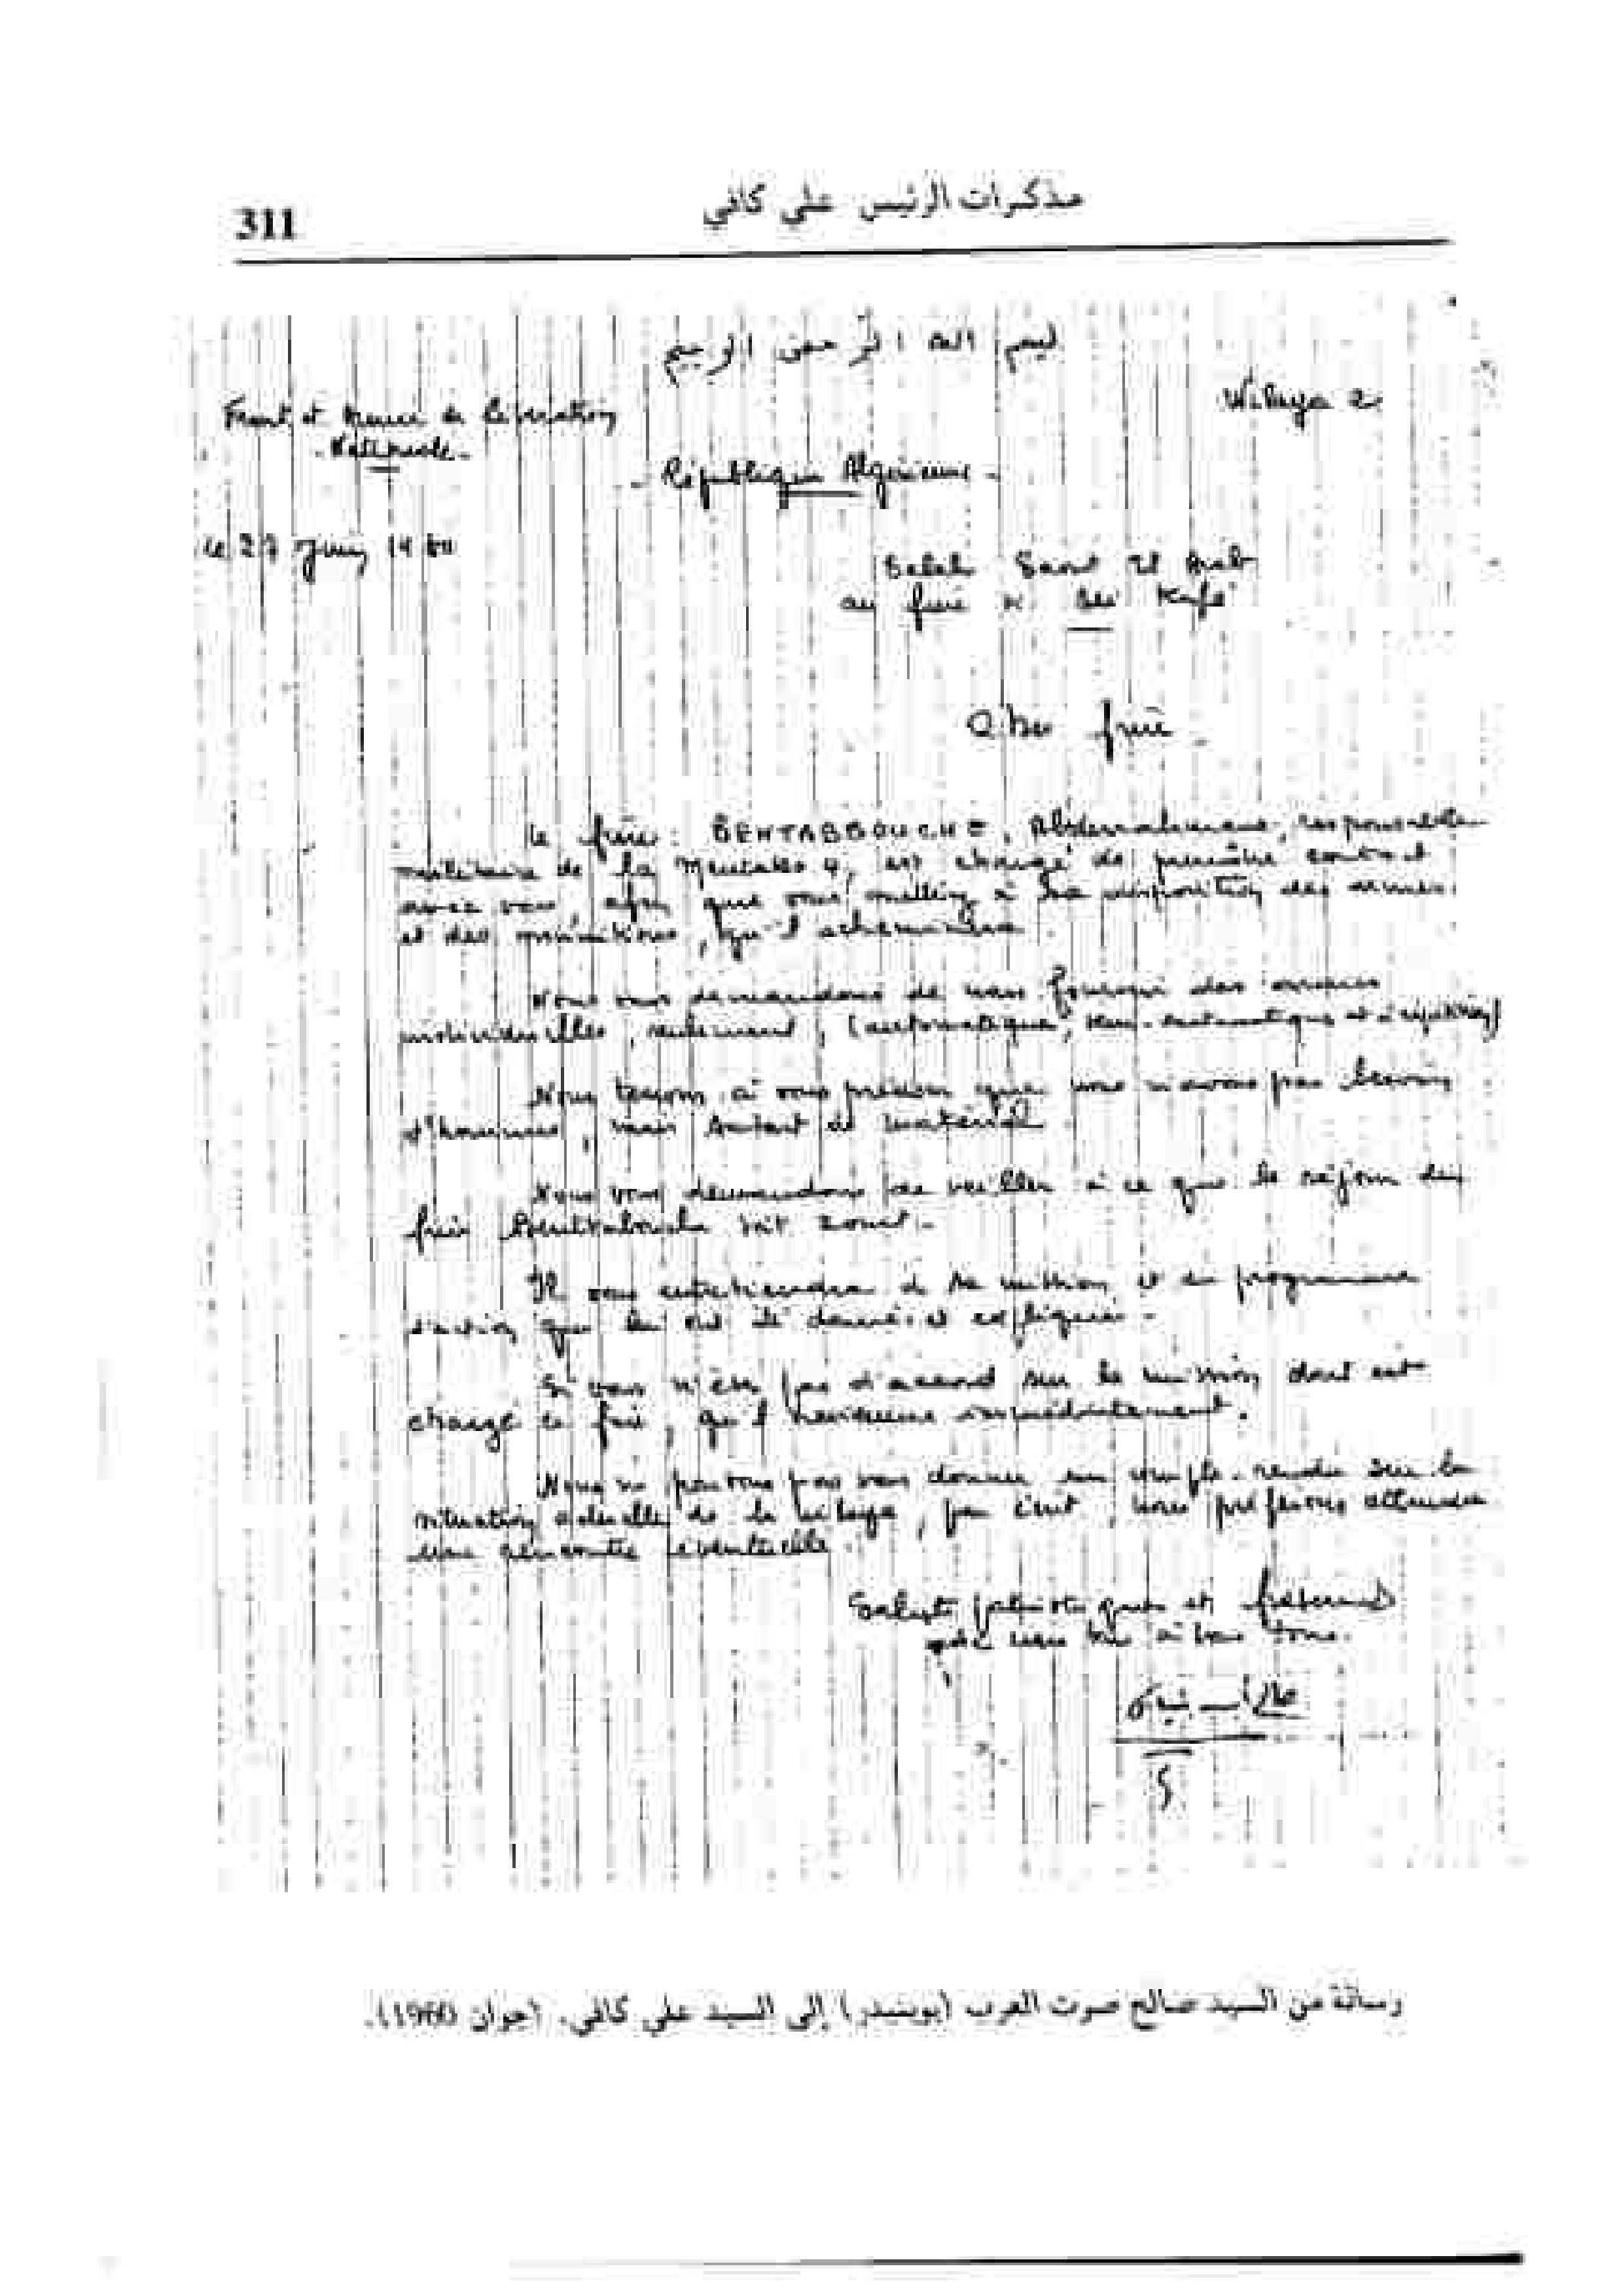 مذكرات الرئيس علي كافي
311
بسم الله الرحمن الرحيم
Wilaya 2
Front et Armée de Libération
- Nationale -
- République Algérienne -
le 27 Juin 1960
Salah Saout El Arab
au frère Ali Kafi
Cher frère
le frère : BENTABBOUCHE, Abderrahmane, responsable
militaire de la Mintaka 4, est chargé de prendre contact
avec vous, afin que vous mettiez à sa disposition des armes
et des munitions, qu'il acheminera
Nous vous demandons de nous fournir des armes
individuelles, seulement, (automatique, semi-automatique et à répétition)
Nous tenons à vous préciser que nous n'avons pas besoin
d'hommes, mais surtout de matériel
Nous vous demandons de veiller à ce que le séjour du
frère Bentabouche soit court.-
Il vous entretiendra de sa mission et du programme
d'action qui lui ont été donnés et expliqués -
Si vous n'êtes pas d'accord sur la mission dont est
chargé ce frère, qu'il revienne immédiatement.
Nous ne pouvons pas vous donner un compte-rendu sur la
situation actuelle de la wilaya, par écrit, nous préférons attendre
une rencontre éventuelle.
Saluts patriotiques et fraternels
de nous tous à vous tous.
رسالة من السيد صالح صوت العرب (بوبنيدر) إلى السيد علي كافي. (جوان 1960).